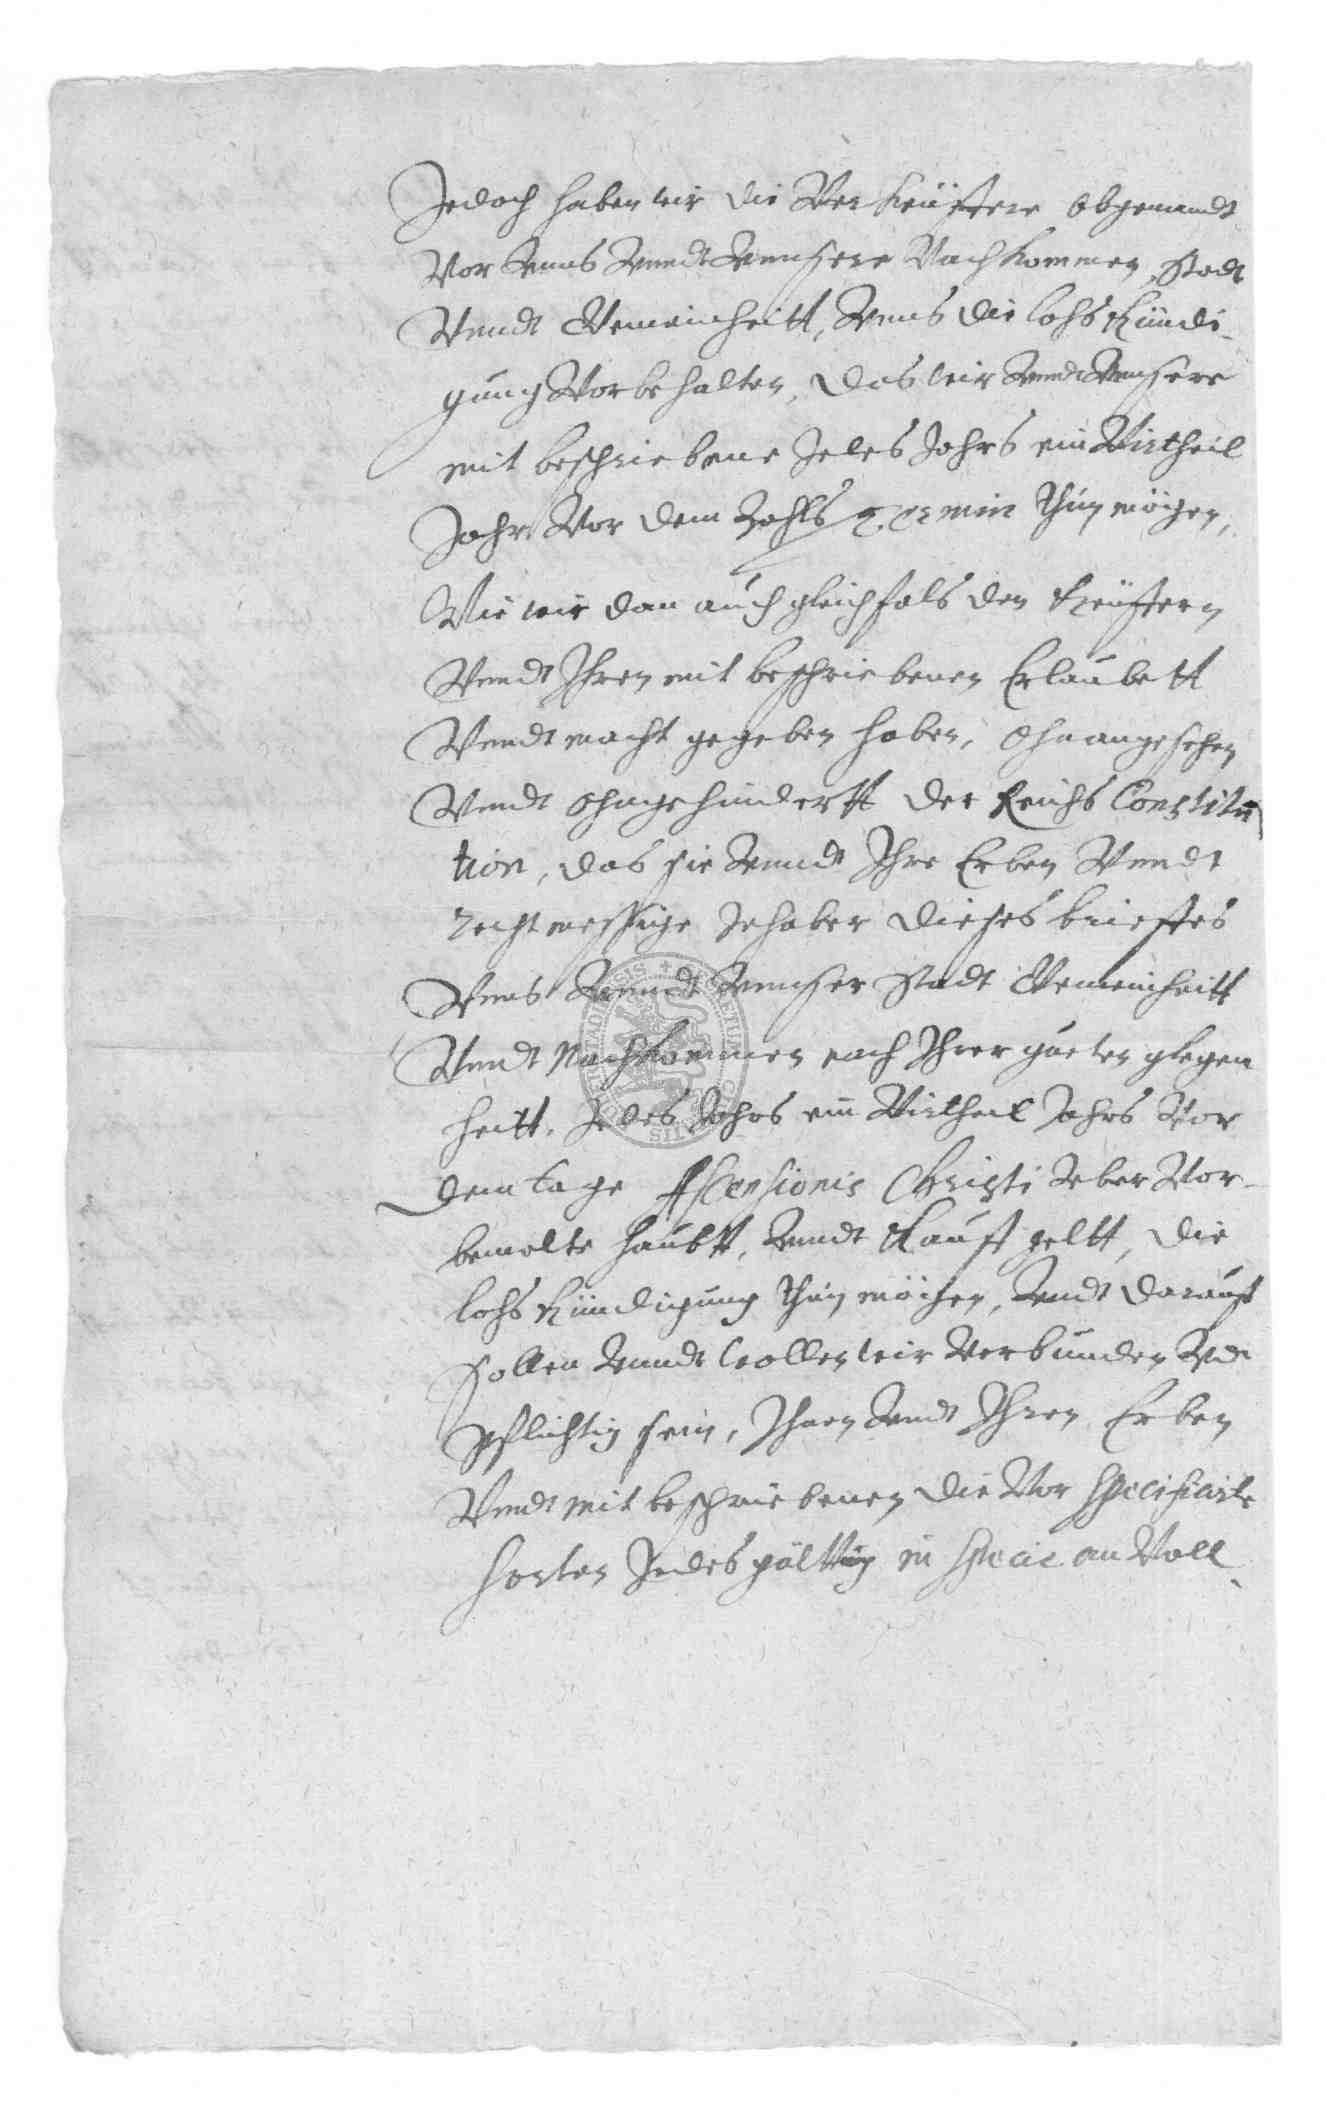 Jedoch haben wir die Verkeuffere obgenandt
Vor Vnns Vnndt Vnnsere Nachkommen, Stadt
Vnndt Gemeinheitt, Vnns die loßkündi-
gung Vorbehalten, das wir Vnndt Vnnsere
mit beschriebene Jedes Jahrs ein Virtheil
Jahr Vor dem Zahls Termin thun mögen,
Wie wir dan auch gleichfals den Keuffern
Vnndt Ihren mit beschriebenen Erlaubett
Vnndt macht gegeben haben, ohnangesehen
Vnndt ohngehindertt der Reichs Constitu
tion, das sie Vnndt Ihre Erben Vnndt
rechtmessige Inhaber dieses brieffes
Vnns Vnndt Vnnser Stadt Gemeinheitt
Vnndt Nachkommen nach Ihrer gueten glegen
heitt, Jedes Jahrs ein Virtheil Jahrs Vor
dem tage Ascensionis Christi Vber Vor-
bemelte haubtt, Vnndt Kauff geltt, die
loßkündigung thun mögen, Vnndt darauff
sollen Vnndt wollen wir Verbunden Vnd
Pflichtig sein, Ihnen Vnndt Ihren Erben
Vnndt mit beschriebenen die Vor specificirte
sorten Jedes gülttig in specie an Voll